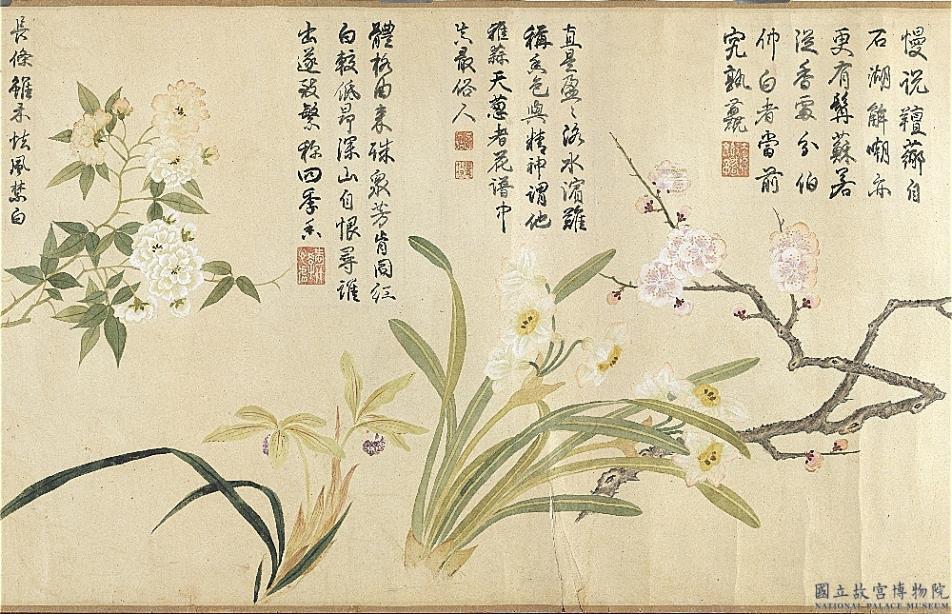 慢說羶薌自
石湖解嘲亦
更有髯蘇若
從香處分伯
仲白者當前
究孰
真是盈〻洛水濱雖
稱香色與精神謂他
雅蒜天蔥者花譜中
最俗人
體格由來殊衆芳肯同紅
白較低昂深山自恨尋誰
出遂致繁稱四季香
長條雖不怯風禁白
國立故宮博物院
NATIONAL PALACE MUSEUM